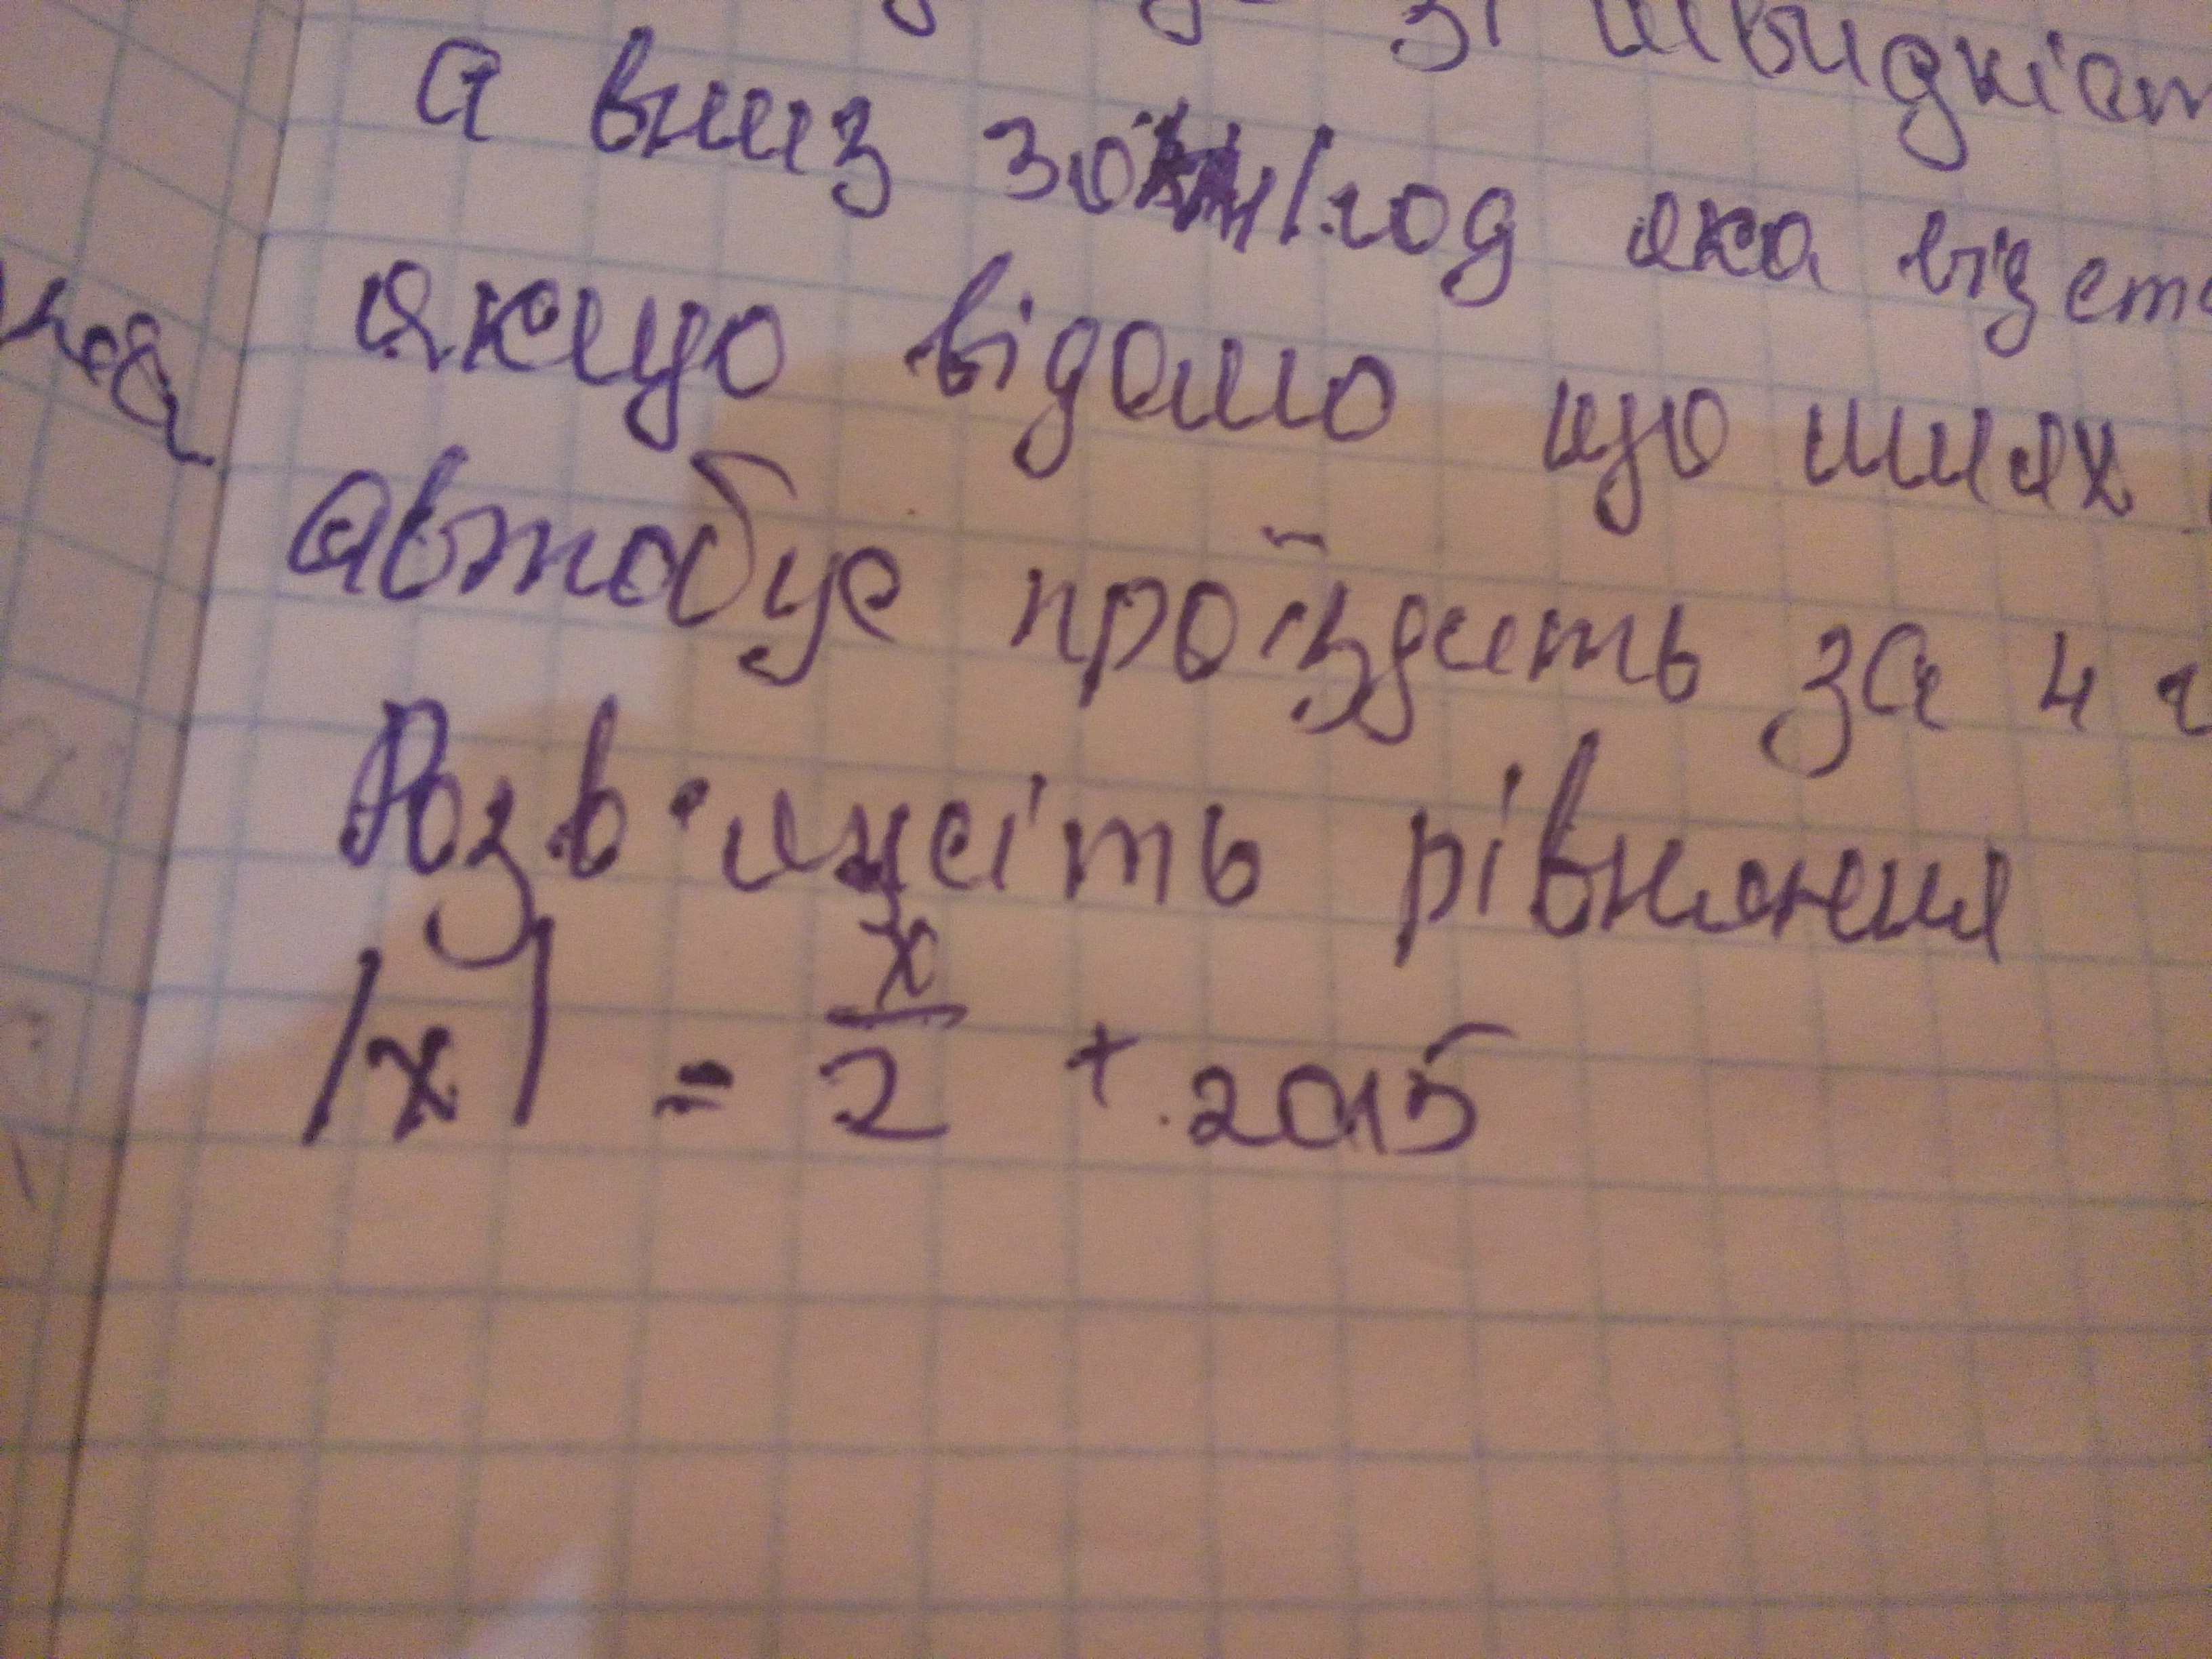 зі швидкіст
а вниз 30 км/год яка відст
якщо відомо що шлях
автобус проїздить за 4 г
Розв'яжіть рівняння
|x| = x/2 + 2015